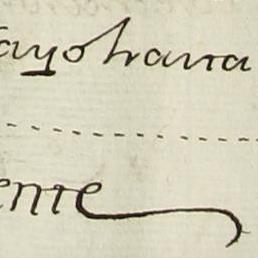 ayo hasta
ente